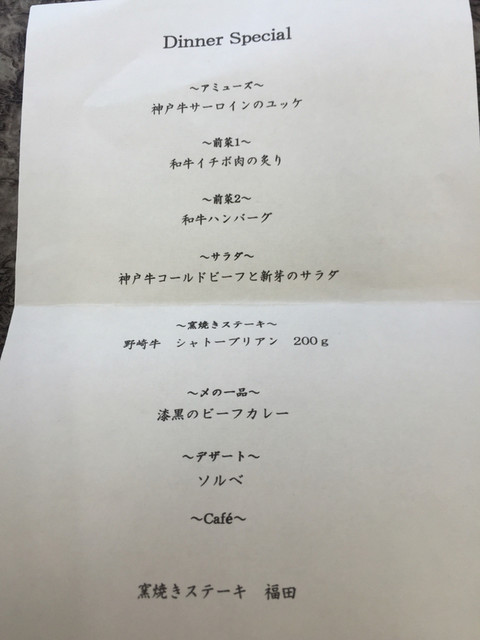 Dinner Special
～アミューズ～
神戸牛サーロインのユッケ
～前菜1～
和牛イチボ肉の炙り
～前菜2～
和牛ハンバーグ
～サラダ～
神戸牛コールドビーフと新芽のサラダ
～窯焼きステーキ～
野崎牛　シャトーブリアン　200ｇ
～〆の一品～
漆黒のビーフカレー
～デザート～
ソルベ
～Café～
窯焼きステーキ　福田